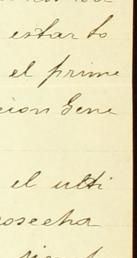 estar to
el prime
cion Gene
el ulti
osecha